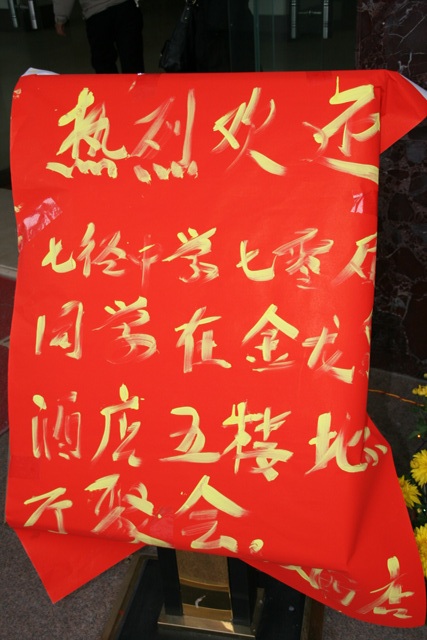 热烈欢迎
七径中学七零届
同学在金龙
酒店五楼地
厅聚会.
店